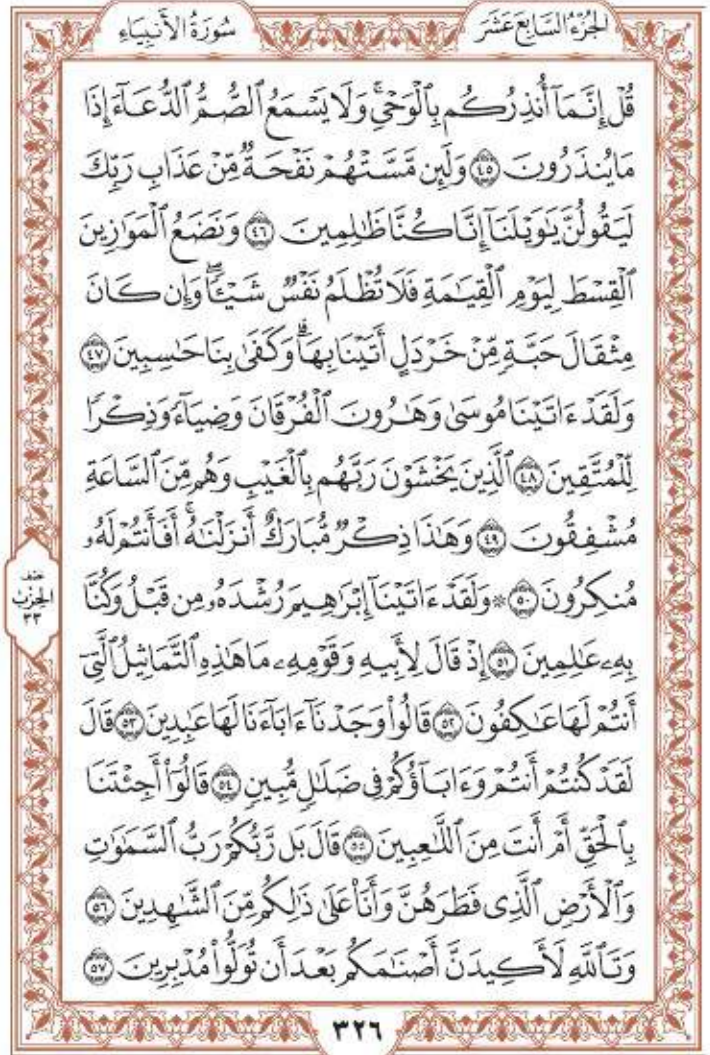 الجُزْءُ السَّابِعَ عَشَرَ
سُورَةُ الأَنبِيَاءِ
قُلْ إِنَّمَآ أُنذِرُكُم بِٱلْوَحْيِۚ وَلَا يَسْمَعُ ٱلصُّمُّ ٱلدُّعَآءَ إِذَا
مَا يُنذَرُونَ ٤٥ وَلَئِن مَّسَّتْهُمْ نَفْحَةٌ مِّنْ عَذَابِ رَبِّكَ
لَيَقُولُنَّ يَٰوَيْلَنَآ إِنَّا كُنَّا ظَٰلِمِينَ ٤٦ وَنَضَعُ ٱلْمَوَٰزِينَ
ٱلْقِسْطَ لِيَوْمِ ٱلْقِيَٰمَةِ فَلَا تُظْلَمُ نَفْسٌ شَيْـًٔاۖ وَإِن كَانَ
مِثْقَالَ حَبَّةٍ مِّنْ خَرْدَلٍ أَتَيْنَا بِهَاۗ وَكَفَىٰ بِنَا حَٰسِبِينَ ٤٧
وَلَقَدْ ءَاتَيْنَا مُوسَىٰ وَهَٰرُونَ ٱلْفُرْقَانَ وَضِيَآءً وَذِكْرًا
لِّلْمُتَّقِينَ ٤٨ ٱلَّذِينَ يَخْشَوْنَ رَبَّهُم بِٱلْغَيْبِ وَهُم مِّنَ ٱلسَّاعَةِ
مُشْفِقُونَ ٤٩ وَهَٰذَا ذِكْرٌ مُّبَارَكٌ أَنزَلْنَٰهُۚ أَفَأَنتُمْ لَهُۥ
مُنكِرُونَ ٥٠ ۞ وَلَقَدْ ءَاتَيْنَآ إِبْرَٰهِيمَ رُشْدَهُۥ مِن قَبْلُ وَكُنَّا
بِهِۦ عَٰلِمِينَ ٥١ إِذْ قَالَ لِأَبِيهِ وَقَوْمِهِۦ مَا هَٰذِهِ ٱلتَّمَاثِيلُ ٱلَّتِىٓ
أَنتُمْ لَهَا عَٰكِفُونَ ٥٢ قَالُوا۟ وَجَدْنَآ ءَابَآءَنَا لَهَا عَٰبِدِينَ ٥٣ قَالَ
لَقَدْ كُنتُمْ أَنتُمْ وَءَابَآؤُكُمْ فِى ضَلَٰلٍ مُّبِينٍ ٥٤ قَالُوٓا۟ أَجِئْتَنَا
بِٱلْحَقِّ أَمْ أَنتَ مِنَ ٱللَّٰعِبِينَ ٥٥ قَالَ بَل رَّبُّكُمْ رَبُّ ٱلسَّمَٰوَٰتِ
وَٱلْأَرْضِ ٱلَّذِى فَطَرَهُنَّ وَأَنَا۠ عَلَىٰ ذَٰلِكُم مِّنَ ٱلشَّٰهِدِينَ ٥٦
وَتَٱللَّهِ لَأَكِيدَنَّ أَصْنَٰمَكُم بَعْدَ أَن تُوَلُّوا۟ مُدْبِرِينَ ٥٧
نصف
الحِزْب
٣٣
٣٢٦